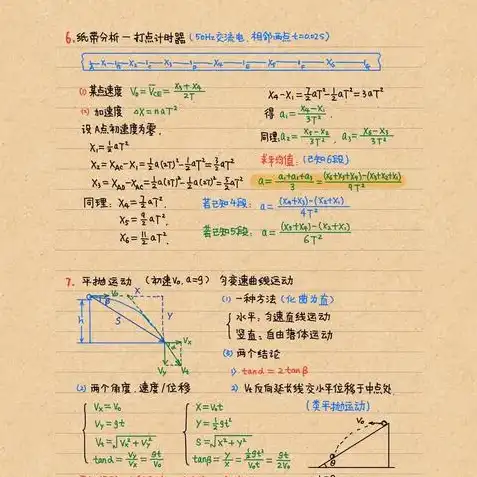 6. 纸带分析 — 打点计时器 (50Hz交流电, 相邻两点 t=0.02s)
A X₁ B X₂ C X₃ D X₄ E X₅ F X₆ G
(1) 某点速度 V_D = V̅_CE = (X₃+X₄)/2T
(2) 加速度 ΔX = naT²
设A点初速度为零.
X₁ = ½aT²
X₂ = X_AC - X₁ = ½a(2T)² - ½aT² = 3/2 aT²
X₃ = X_AD - X_AC = ½a(3T)² - ½a(2T)² = 5/2 aT²
同理: X₄ = 7/2 aT².
X₅ = 9/2 aT².
X₆ = 11/2 aT².
X₄ - X₁ = 7/2 aT² - ½aT² = 3aT²
得 a₁ = (X₄-X₁)/3T².
同理, a₂ = (X₅-X₂)/3T², a₃ = (X₆-X₃)/3T²
求平均值: (已知6段)
a = (a₁+a₂+a₃)/3 = ((X₆+X₅+X₄)-(X₃+X₂+X₁))/9T²
若已知4段: a = ((X₄+X₃)-(X₂+X₁))/4T²
若已知5段: a = ((X₅+X₄)-(X₂+X₁))/6T²
7. 平抛运动 (初速V₀, a=g) 匀变速曲线运动
V₀ X β S h Y α Vx Vy Vt
(1) 一种方法 (化曲为直)
水平: 匀速直线运动
竖直: 自由落体运动
(3) 两个结论
1) tanα = 2tanβ
(2) 两个角度, 速度/位移
Vx = V₀
Vy = gt
Vt = √(Vx²+Vy²)
tanα = Vy/Vx = gt/V₀
X = V₀t
Y = ½gt²
S = √(X²+Y²)
tanβ = Y/X = ½gt²/V₀t = gt/2V₀
2) Vt反向延长线交水平位移于中点处
(类平抛运动)
V₀
θ